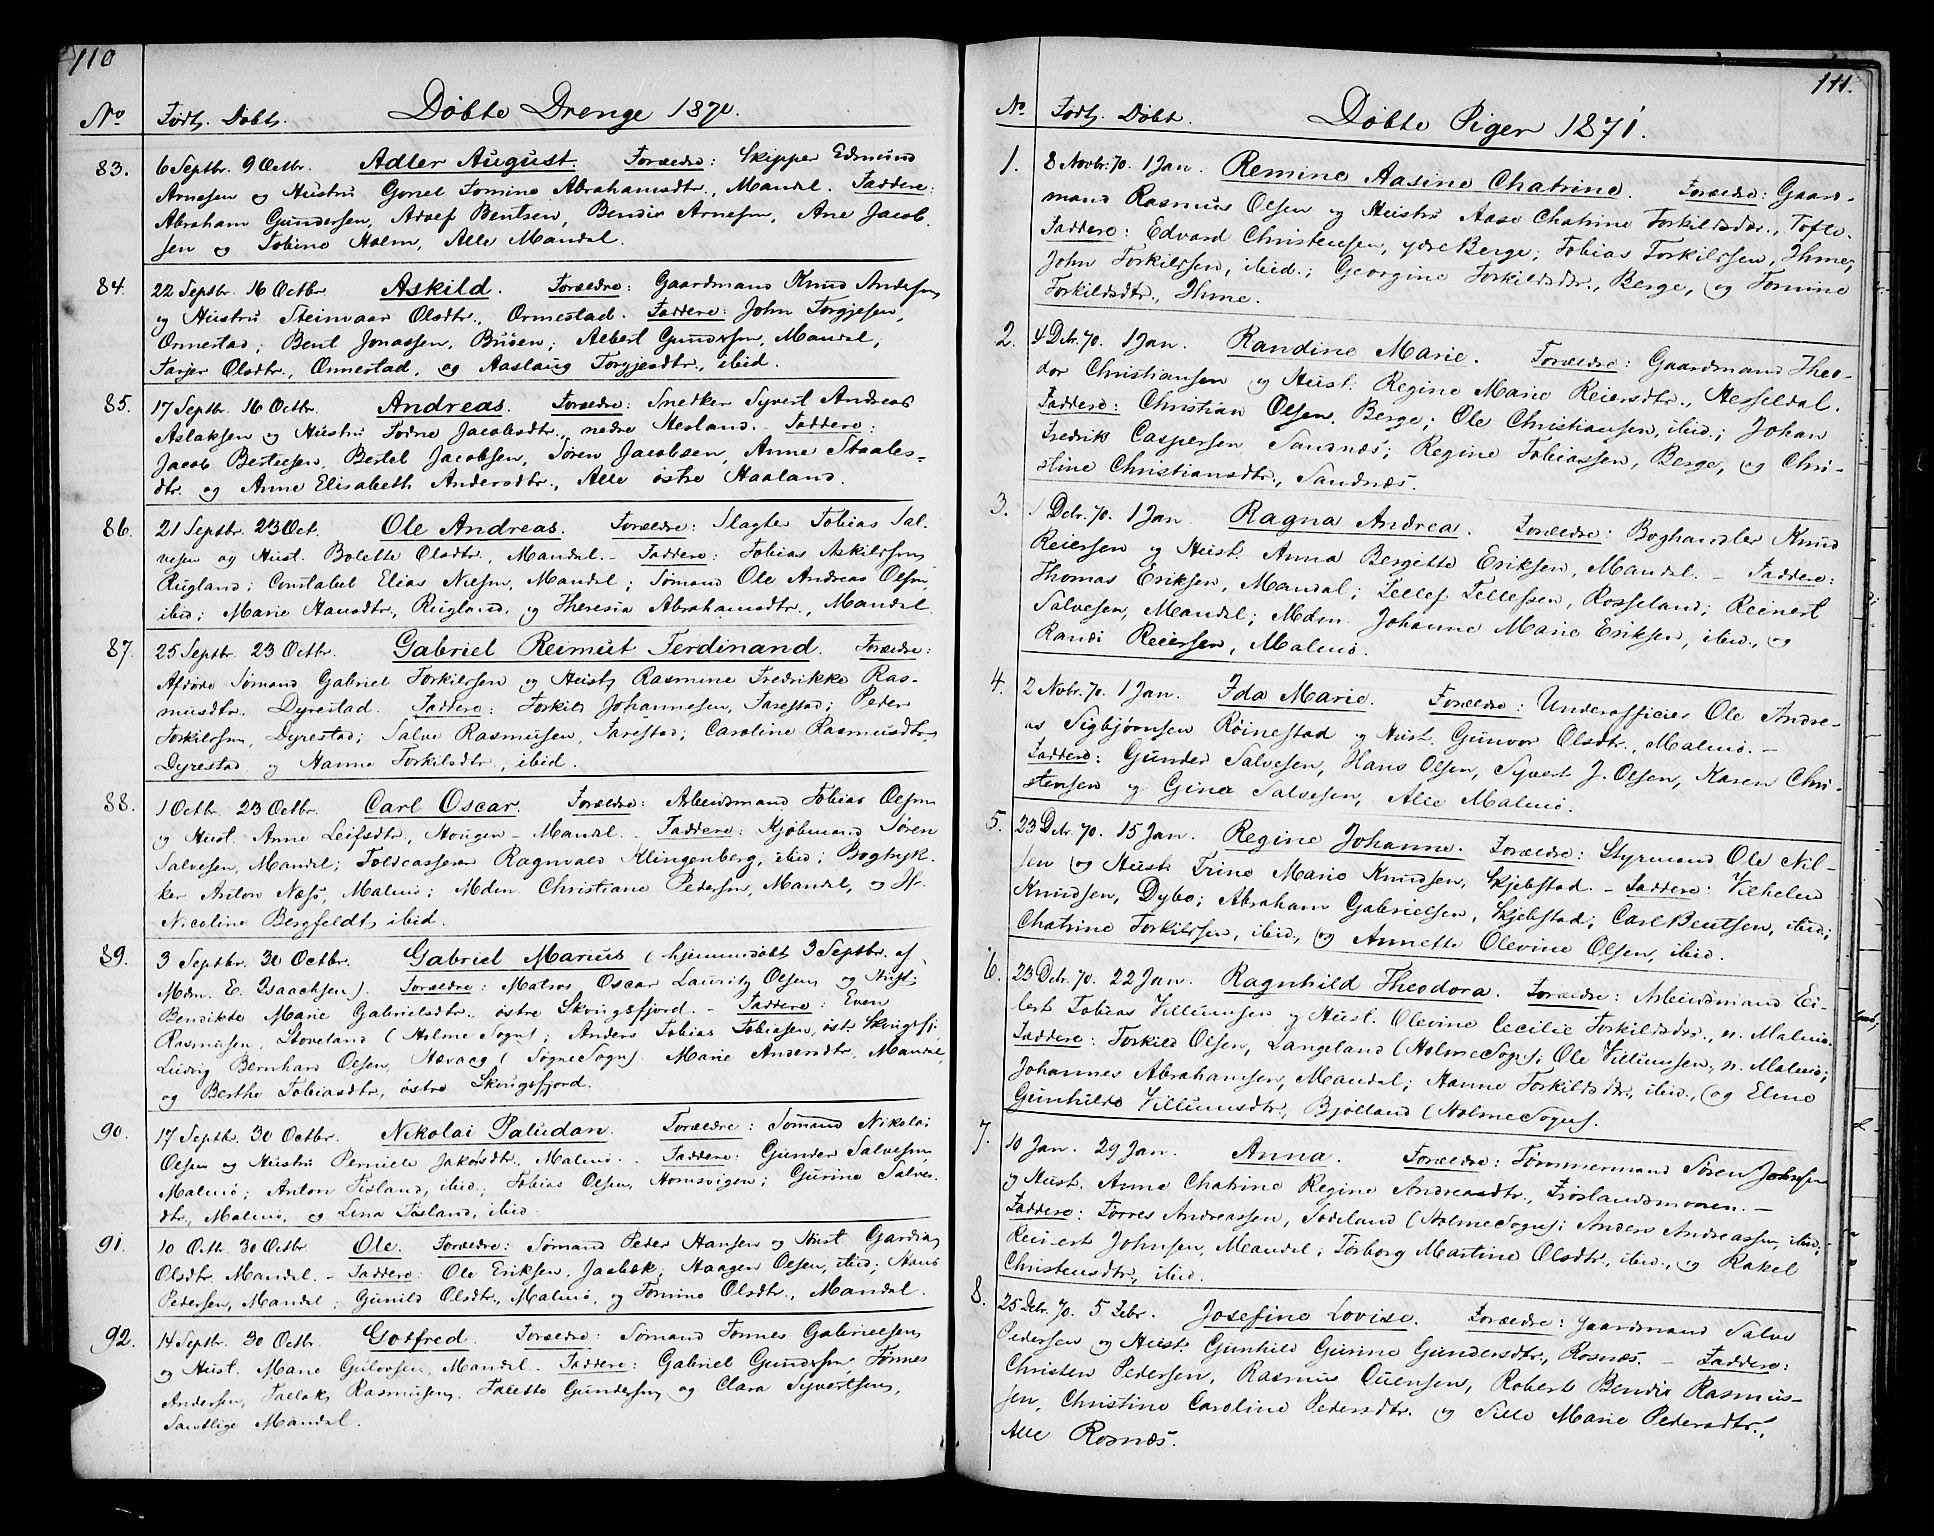 110
No Født. Døbt. Døbte Drenge 1870.
83. 6 Septbr. 9 Octbr. Adler August. Forældre: Skipper Edmund
Arnesen og Hustru Gonel Tomine Abrahamsdtr., Mandal. Faddere:
Abraham Gundersen, Adolf Bentsen, Bendix Arnesen, Ane Jacob-
sen og Tobine Holm, Alle Mandal.
84. 22 Septbr. 16 Octbr. Askild. Forældre: Gaardmand Knud Andersen
og Hustru Steinvaar Olsdtr., Ormestad. Faddere: John Torgjesen,
Ormestad; Bent Jonassen, Buøen; Albert Gundersen, Mandal,
Tarjer Olsdtr., Ormestad, og Aaslaug Torgjesdtr., ibid.
85. 17 Septbr. 16 Octbr. Andreas. Forældre: Snedker Syvert Andreas
Aslaksen og Hustru Todne Jacobsdtr., nedre Hesland. - Faddere:
Jacob Bertelsen, Bertel Jacobsen, Søren Jacobsen, Anne Staales-
dtr. og Anne Elisabeth Andersdtr., Alle østre Haaland.
86. 21 Septbr. 23 Oct. Ole Andreas. Forældre: Slagter Tobias Sal-
vesen og Hust. Bolette Olsdtr., Mandal. - Faddere: Tobias Askildsen,
Rugland; Constabel Elias Nielsen, Mandal; Sømand Ole Andreas Olsen,
ibid; Marie Hansdtr., Rugland, og Theresia Abrahamsdtr., Mandal.
87. 25 Septbr. 23 Octbr. Gabriel Reimut Ferdinand. Forældre:
Afdøde Sømand Gabriel Torkildsen og Hust. Rasmine Fredrikke Ras-
musdtr. Dyrestad. Faddere: Torkild Johannesen, Tarestad; Peder
Torkildsen, Dyrestad; Salve Rasmusen, Tarestad; Caroline Rasmusdtr.,
Dyrestad og Hanne Torkildsdtr., ibid.
88. 1 Octbr. 23 Octbr. Carl Oscar. Forældre: Arbeidsmand Tobias Olsen
og Hust. Anne Leifsdtr., Hougen - Mandal. - Faddere: Kjøbmand Søren
Salvesen, Mandal; Toldcasserer Ragnvald Klingenberg, ibid; Bogtryk-
ker Anton Næss, Malmø; Mdm. Christiane Pedersen, Mandal, og Jfr.
Nicoline Bergfeldt, ibid.
89. 3 Septbr. 30 Octbr. Gabriel Marius (hjemmedøbt 3 Septbr. af
Mdm. E. Isaachsen). Forældre: Matros Oscar Lauritz Olsen og Hust.
Bendikte Marie Gabrielsdtr., østre Skougsfjord. - Faddere: Even
Rasmusen, Stoveland (Holme Sogn); Anders Tobias Tobiasen, øst. Skougsfj.
Ludvig Bernhard Olsen, Høvaag (Søgne Sogn), Marie Andersdtr., Mandal,
og Berthe Tobiasdtr., østre Skougsfjord.
90. 17 Septbr. 30 Octbr. Nikolai Paludan. Forældre: Sømand Nikolai
Olsen og Hustru Pernille Jakobsdtr., Malmø. Faddere: Gunder Salvesen,
Malmø; Anton Tisland, ibid.; Tobias Olsen, Homsvigen; Gurine Salves-
dtr., Malmø, og Lina Tisland, ibid.
91. 10 Octb. 30 Octbr. Ole. Forældre: Sømand Peder Hansen og Hust. Gardia
Olsdtr. Mandal. - Faddere: Ole Eriksen, Jaabæk; Haagen Olsen, ibid; Hans
Pedersen, Mandal; Gunild Olsdtr., Malmø, og Tomine Olsdtr., Mandal.
92. 14 Septbr. 30 Octbr. Gotfred. Forældre: Sømand Tønnes Gabrielsen
og Hust. Marie Gulovsen, Mandal. Faddere: Gabriel Gundersen, Tønnes
Andersen, Tallak Rasmusen, Talette Gundersen og Clara Syvertsen,
Samtlige Mandal.
111.
No Født. Døbt. Døbte Piger 1871.
1. 8 Novbr. 70. 1 Jan. Remine Aasine Chatrine. Forældre: Gaard-
mand Rasmus Olsen og Hustru Aase Chatrine Torkildsdtr., Tofte.
Faddere: Edvard Christensen, ydre Berge; Tobias Torkildsen, Ihme;
John Torkildsen, ibid.; Georgine Torkildsdtr., Berge, og Tomine
Torkildsdtr., Ihme.
2. 4 Debr. 70. 1 Jan. Randine Marie. Forældre: Gaardmand Theo-
dor Christiansen og Hust. Regine Marie Reiersdtr., Hesseldal.
Faddere: Christian Olsen, Berge; Ole Christiansen, ibid.; Johan
Fredrik Caspersen Sandnæs; Regine Tobiassen, Berge, og Chri-
stine Christiansdtr., Sandnæs.
3. 1 Debr. 70. 1 Jan. Ragna Andrea. Forældre: Boghandler Knud
Reiersen og Hust. Anna Bergitte Eriksen, Mandal. - Faddere:
Thomas Eriksen, Mandal; Tellef Tellefsen, Rosseland; Reinert
Salvesen, Mandal; Mdm. Johanne Marie Eriksen, ibid., og
Randi Reiersen, Malmø.
4. 2 Novbr. 70. 1 Jan. Ida Marie. Forældre: Underofficier Ole Andre-
as Sigbjørnsen Røinestad og Hust. Gunvor Olsdtr., Malmø. -
Faddere: Gunder Salvesen, Hans Olsen, Syvert J. Olsen, Karen Chri-
stensen og Gina Salvesen, Alle Malmø.
5. 23 Debr. 70. 15 Jan. Regine Johanne. Forældre: Styrmand Ole Nil-
sen og Hust. Trine Marie Knudsen, Skjebstad. - Faddere: Vilhelm
Knudsen, Dybo; Abraham Gabrielsen, Skjebstad; Carl Bentsen, ibid;
Chatrine Torkildsen, ibid., og Annette Olevine Olsen, ibid.
6. 23 Debr. 70. 22 Jan. Ragnhild Theodora. Forældre: Arbeidsmand Ei-
lert Tobias Villumsen og Hust. Olevine Cecilie Torkildsdtr., n. Malmø.
Faddere: Torkild Olsen, Langeland (Holme Sogn); Ole Villumsen, n. Malmø;
Johannes Abrahamsen, Mandal; Hanne Torkildsdtr., ibid., og Eline
Gunhilde Villumsdtr., Bjølland (Holme Sogn).
7. 10 Jan. 29 Jan. Anna. Forældre: Tømmermand Søren Johnsen
og Hust. Anne Chatrine Regine Andreasdtr., Frøslandsmoen. -
Faddere: Tørres Andreassen, Sodeland (Holme Sogn); Anders Andreassen, ibid;
Reinert Johnsen, Mandal; Torborg Martine Olsdtr., ibid., og Rakel
Christensdtr., ibid.
8. 25 Debr. 70. 5 Febr. Josefine Lovise. Forældre: Gaardmand Salve
Pedersen og Hust. Gunhild Gurine Gundersdtr., Rosnæs. - Faddere:
Christen Pedersen, Rasmus Ouensen, Robert Bendix Rasmus-
sen, Christine Caroline Pedersdtr. og Sille Marie Pedersdtr.,
Alle Rosnæs.